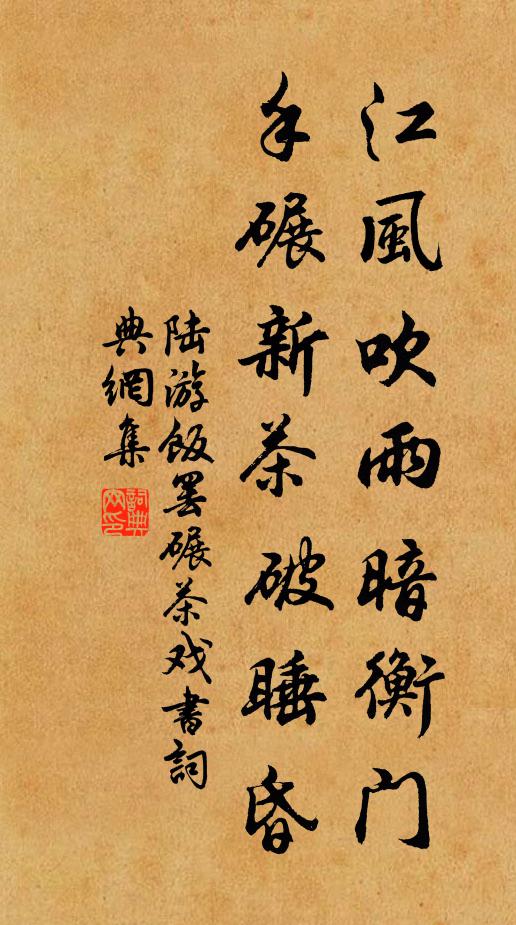 江風吹雨暗衡门
手碾新茶破睡昏
陆游飯罢碾茶戏書詞
典網集
詞典
网印